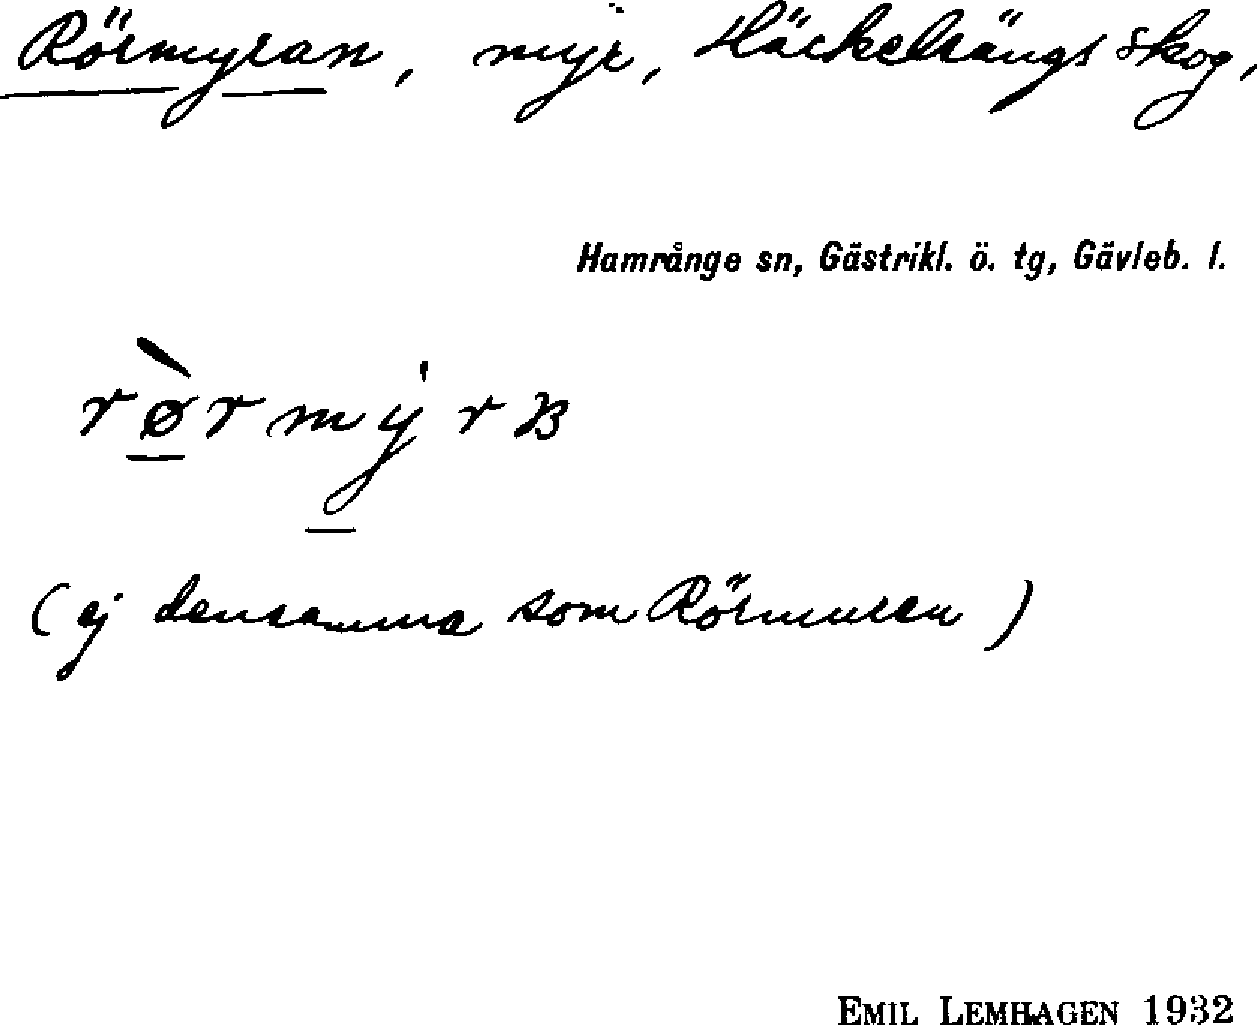 Rörmyran, myr, Häckelsängs skog,
Hamrånge sn, Gästrikl. ö. tg, Gävleb. l.
rø̀rmy̍rʙ
(ej densamma som Rörmuren)
EMIL LEMHAGEN 1932